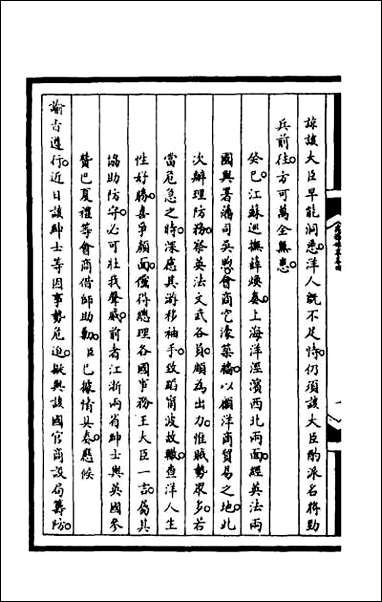 諒該大臣早能洞悉洋人既不足恃仍須該大臣酌派名將勁
兵前往方可萬全無患
癸巳江蘇巡撫薛煥奏上海洋涇濱西北兩面經英法兩
國與署藩司吳煦會商定濠築橋以衛洋商貿易之地此
次辦理防務察英法文武各員頗為出力惟賊勢眾多若
當危急之時深慮其游移袖手致蹈甯波故轍查洋人生
性好勝喜爭顏面僅得總理各國事務王大臣一言屬其
協助防守必可壯我聲威前者江浙兩省紳士與英國參
贊巴夏禮等會商借師助勦臣已據情具奏應候
諭旨遵行近日該紳士等因事勢危迫擬與該國官商設局籌防